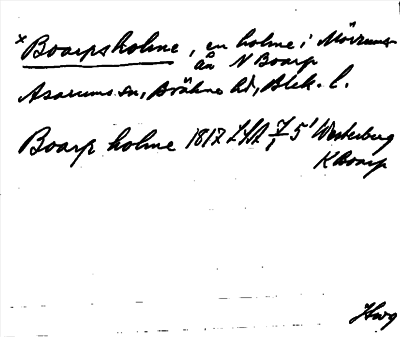 × Boarpsholme, en holme i Mörrums-
ån N Boarp
Asarums sn, Bräkne hd, Blek. l.
Boarps holme 1817 LSA 7/1 5' Westerberg
K Boarp
Hwg